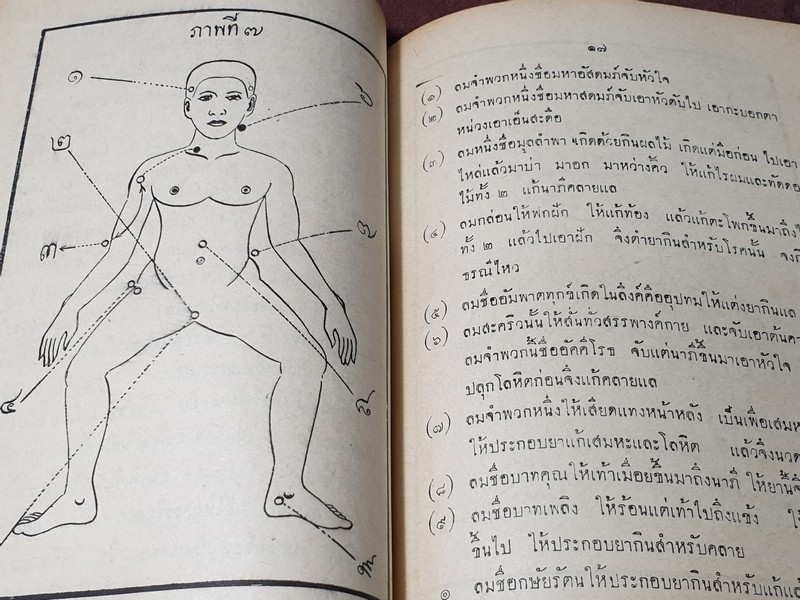 ภาพที่ ๗
๑
๒
๓
๑๗
(๑) ลมจำพวกหนึ่งชื่อมหาอัสดมภ์จับหัวใจ
(๒) ลมจำพวกหนึ่งชื่อมหาสดมภ์จับเอาหัวดับไป เอากะบอกตา
หน่วงเอาเอ็นสะดือ
(๓) ลมหนึ่งชื่อมูลลำพา เกิดด้วยกินผลไม้ เกิดแต่มือก่อน ไปเอา
ไหล่แล้วมาบ่า มาอก มาหว่างคิ้ว ให้แก้ไรผมและทัดดอ
ไม้ทั้ง ๒ แก้นาภีคลายแล
(๔) ลมกล่อนให้ฟกฝัก ให้แก้ท้อง แล้วแก้ตะโพกขึ้นมาถึง
ทั้ง ๒ แล้วไปเอาฝัก จึงตำยากินสำหรับโรคนั้น
ธรณีไหว
(๕) ลมชื่ออัมพาตทุกข์เกิดในลิงค์คืออุปทมให้แต่งยากินแล
(๖) ลมสะคริวนั้นให้สั่นทั่วสรรพางค์กาย และจับเอาต้นคา
ลมจำพวกนี้ชื่ออัคคิโรธ จับแต่นาภีขึ้นมาเอาหัวใจ
ปลุกโลหิตก่อนจึงแก้คลายแล
(๗) ลมจำพวกหนึ่งให้เสียดแทงหน้าหลัง เป็นเพื่อเสมห
ให้ประกอบยาแก้เสมหะและโลหิต แล้วจึงนวด
(๘) ลมชื่อบาทคุณให้เท้าเมื่อยขึ้นมาถึงนาภี ให้ยานี้จึ
(๙) ลมชื่อบาทเพลิง ให้ร้อนแต่เท้าไปถึงแข้ง
ขึ้นไป ให้ประกอบยากินสำหรับคลาย
ลมชื่อกษัยรัตนให้ประกอบยากินสำหรับแก้แล